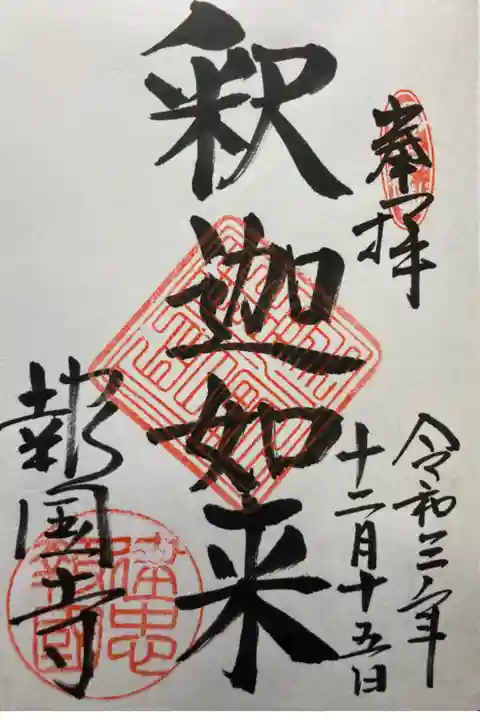 奉拝
令和三年
十二月十五日
釈迦如来
報国寺